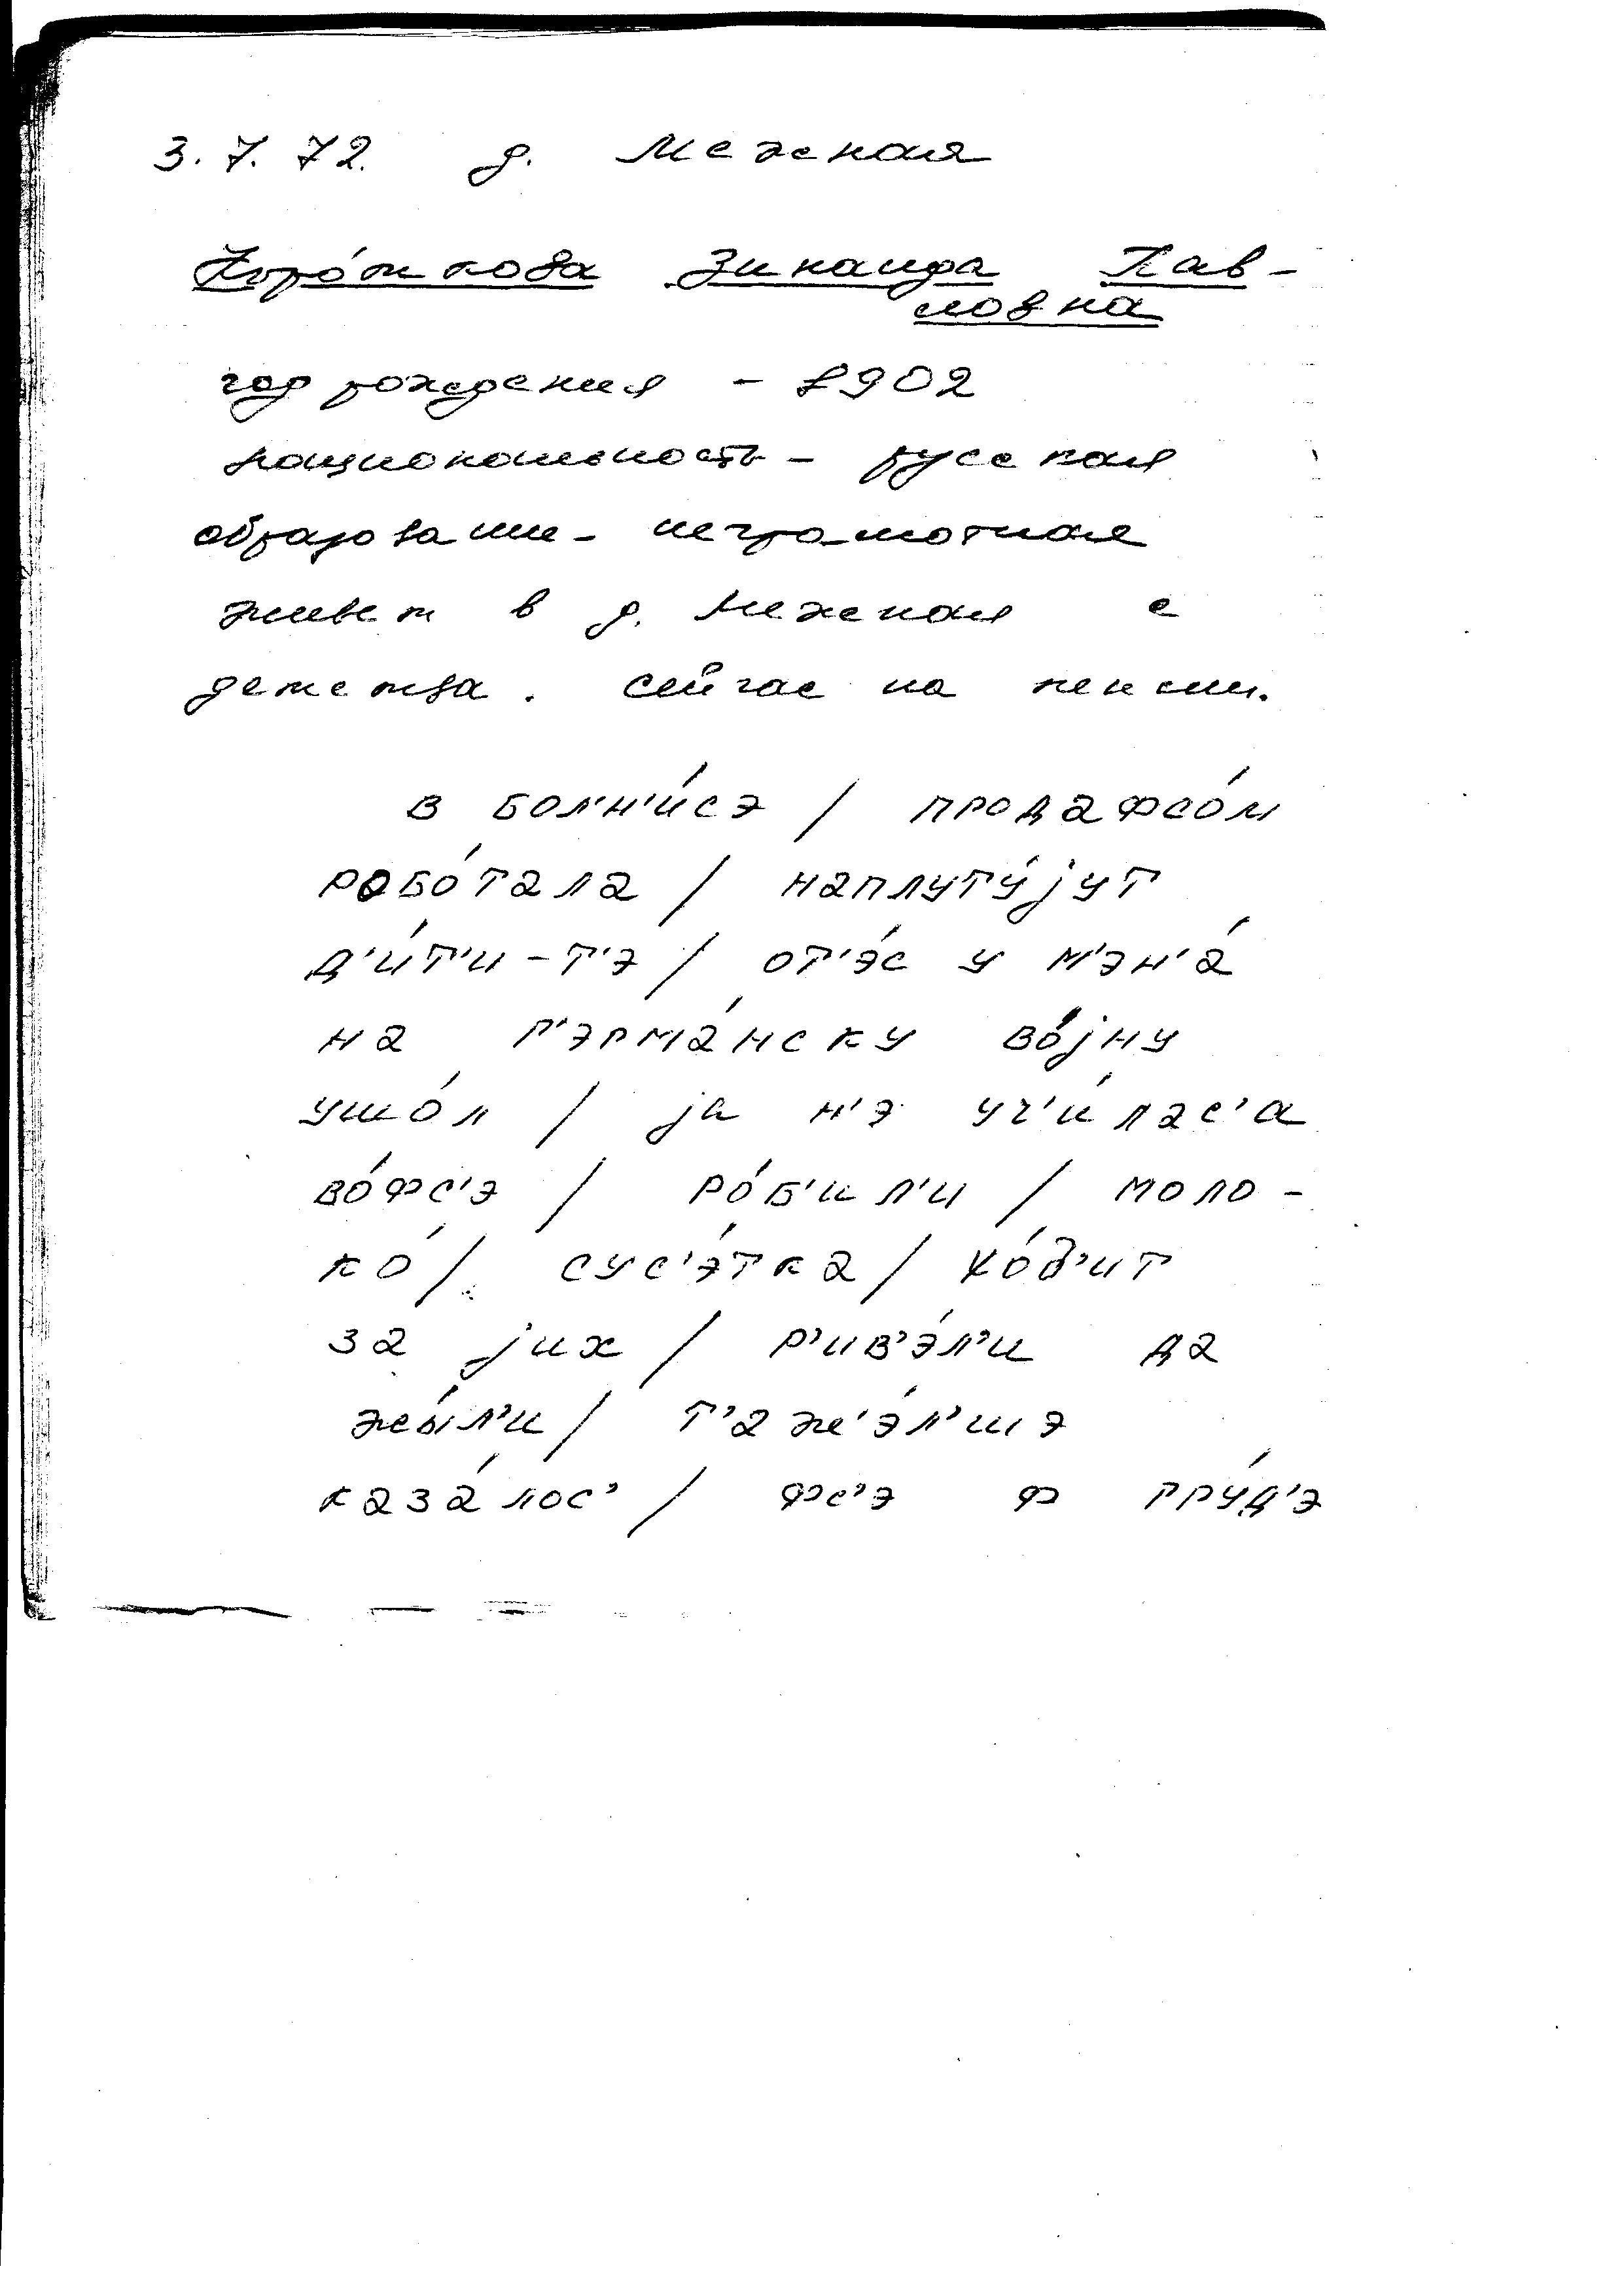 3.7.72. д. Межная
Коро́ткова Зинаида Пав-
ловна
год рождения - 1902
национальность - русская
образование - неграмотная
живет в д. Межная с
детства. Сейчас на пенсии.
в бол'н'и́сэ / продафсо́м
робо́тала / наплуту́јут
д'и́т'и-т'э / от'э́с у м'эн'а́
на г'эрма́нску во́јну
ушо́л / ја н'э уч'и́лас'а
во́фс'э / ро́б'ил'и / моло-
ко́ / сус'э́тка / хо́д'ит
за јих / р'ив'э́л'и да
жы́л'и / т'аж'э́л'шэ
каза́лос' / фс'э ф гру́д'э